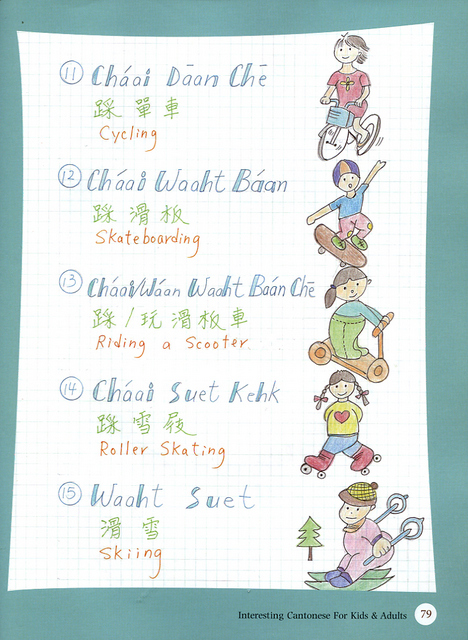 11 Cháai Dāan Chē
踩單車
Cycling
12 Cháai Waaht Báan
踩滑板
Skateboarding
13 Cháai/Wáan Waaht Báan Chē
踩/玩滑板車
Riding a Scooter
14 Cháai Suet Kehk
踩雪屐
Roller Skating
15 Waaht Suet
滑雪
Skiing
Interesting Cantonese For Kids & Adults 79